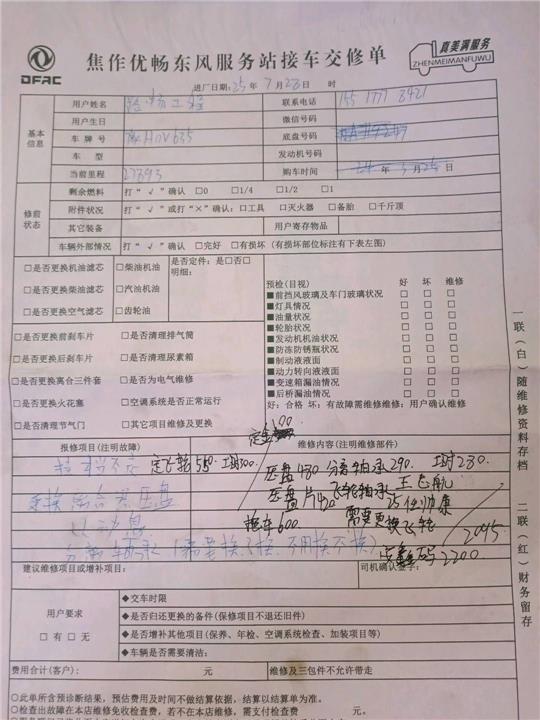 DFAC
焦作优畅东风服务站接车交修单
真美满服务
ZHENMEIMANFUWU
进厂日期: 25 年 7 月 23 日 时
基本信息
用户姓名 联系电话
用户生日 微信号码
车 牌 号 底盘号码
车 型 发动机号码
当前里程 27393 购车时间 24 年 5 月 25 日
修前状态
剩余燃料 打“√”确认 □0 □1/4 □1/2 □1
附件状况 打“√”或打“×”确认: □工具 □灭火器 □备胎 □千斤顶
其它装备 用户寄存物品
车辆外部情况 打“√”确认 □完好 □有损坏 (有损坏部位标注有下表左图)
□是否更换机油滤芯 □柴油机油 是否定件: 是□否□
明细:
□是否更换柴油滤芯 □汽油机油
□是否更换空气滤芯 □齿轮油
预检(目视) 好 坏 维修
■前挡风玻璃及车门玻璃状况 □ □ □
■灯具情况 □ □ □
■油量状况 □ □ □
■轮胎状况 □ □ □
■发动机机油状况 □ □ □
■防冻防锈瓶状况 □ □ □
■制动液液面 □ □ □
■动力转向液液面 □ □ □
■变速箱漏油情况 □ □ □
■后桥漏油情况 □ □ □
好: 合格 坏: 有故障需维修维修: 用户确认维修
□是否更换前刹车片 □是否清理排气筒
□是否更换后刹车片 □是否清理尿素箱
□是否更换离合三件套 □是否为电气维修
□是否更换火花塞 □空调系统是否正常运行
□是否清理节气门 □其它项目维修及更换
报修项目(注明故障) 维修内容(注明维修部件)
定飞轮 550 工时300
压盘 480 分离轴承 290. 工时 280.
压盘片420 飞轮轴承 王飞航
更换离合器压盘
拖车600 需要更换飞轮
2045
分离轴承 (需要换了换, 不用换不换)
2200
建议维修项目或增补项目: 司机确认签字:
用户要求
□ 有 □ 无
◆交车时限
◆是否归还更换的备件(保修项目不退还旧件)
◆是否增补其他项目(保养、年检、空调系统检查、加装项目等)
◆车辆是否需要清洁:
费用合计(客户): 元 维修及三包件不允许带走
○此单所含预诊断结果, 预估费用及时间不做结算依据, 结算以结算单为准。
○检查出故障在本店维修免收检查费, 若不在本店维修, 需支付检查费 元。
一联(白)随维修资料存档
二联(红)财务留存